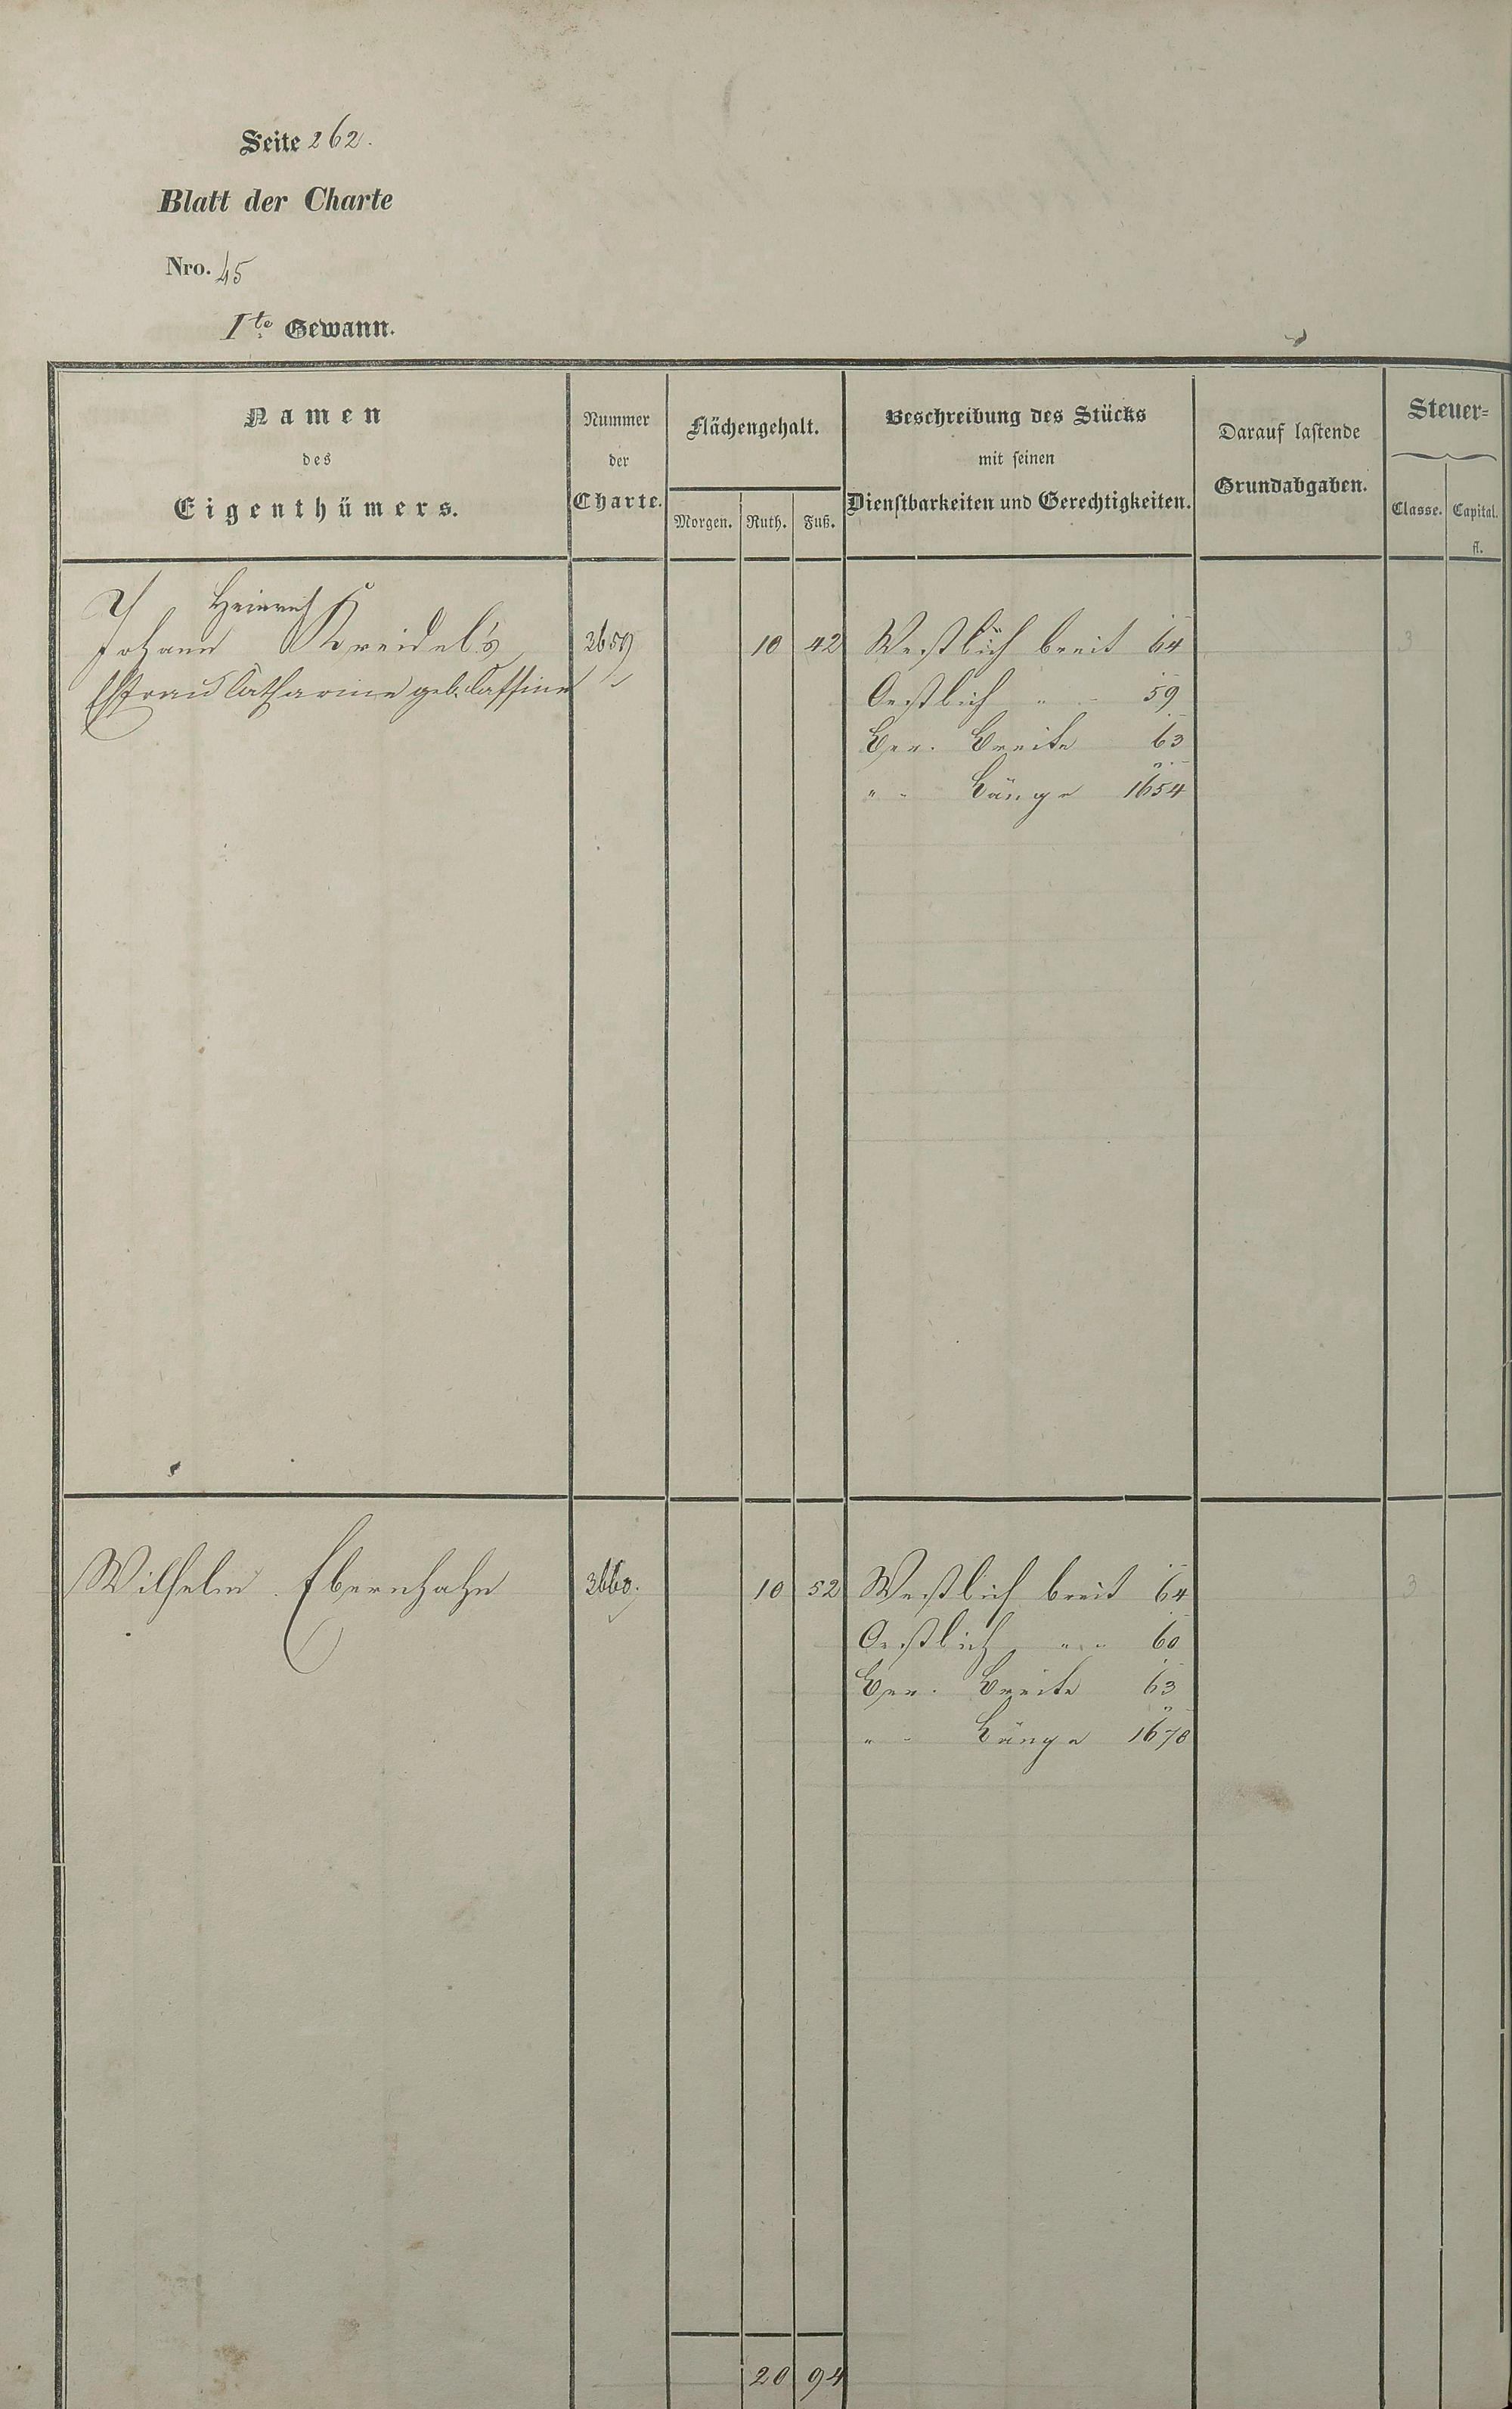 Seite 262.
Blatt der Charte
Nro. 45
Ite Gewann.
Namen des Eigenthümers.
Nummer der Charte.
Flächengehalt.
Morgen. Ruth. Fuß.
Beschreibung des Stücks mit seinen Dienstbarkeiten und Gerechtigkeiten.
Darauf lastende Grundabgaben.
Steuer=
Classe. Capital.
fl.
Heinrich
Johann Kreidel's 3659 10 42 Westlich breit 64 3
Ehfrau Catharine geb. Cassine Oestlich " 59
Ber. Breite 63
" Länge 1654
Wilhelm Ebernhahn 3660. 10 52 Westlich breit 64 3
Oestlich " 60
Ber. Breite 63
" Länge 1670
20 94